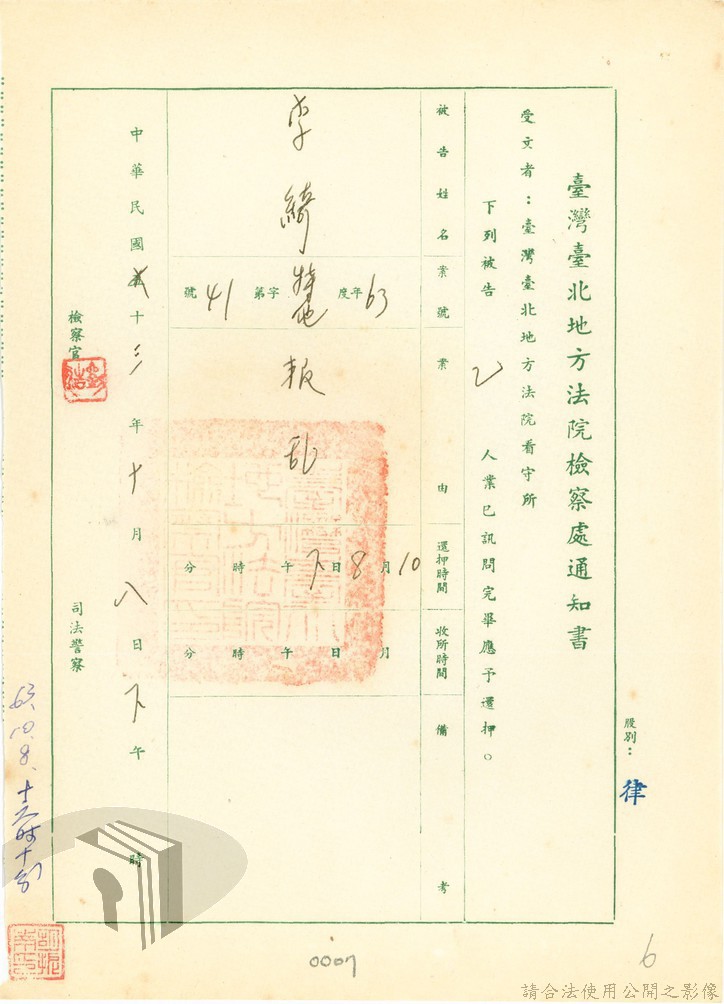 臺灣臺北地方法院檢察處通知書
股別：律
受文者：臺灣臺北地方法院看守所
下列被告 乙 人業已訊問完畢應予還押。
被告姓名
李綺
案號
63年度特他字第41號
案由
叛乱
還押時間
10月8日下午 時 分
收所時間
月 日 午 時 分
備考
中華民國六十三年十月八日下午 時
檢察官
司法警察
63.10.8.
0007
6
請合法使用公開之影像